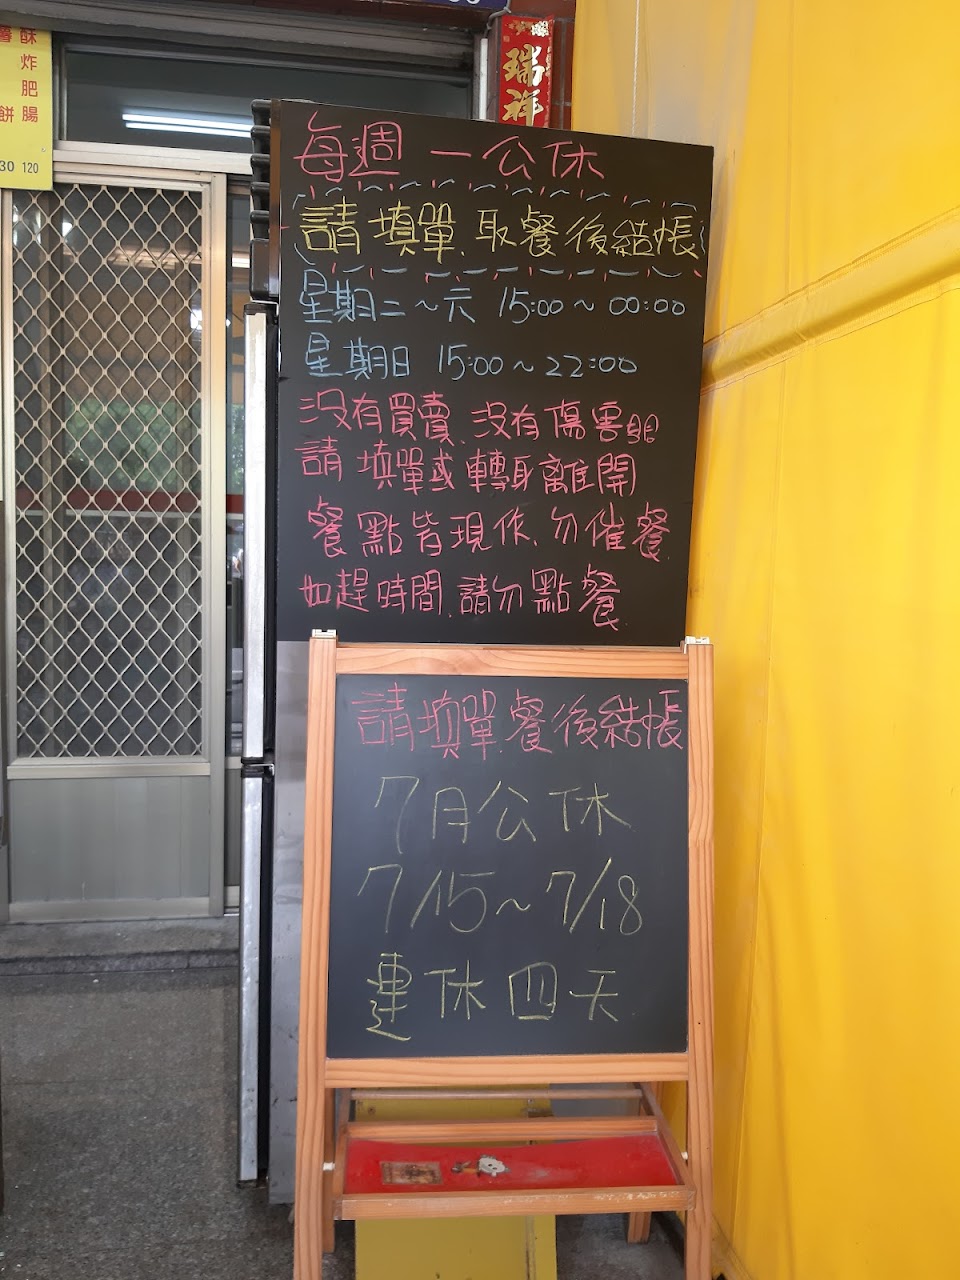 酥炸肥腸
餅
30 120
瑞祥
每週一公休
請填單、取餐後結帳
星期二～六 15:00～00:00
星期日 15:00～22:00
沒有買賣、沒有傷害
請填單或轉身離開
餐點皆現作、勿催餐
如趕時間、請勿點餐
請填單、餐後結帳
7月公休
7/15～7/18
連休四天